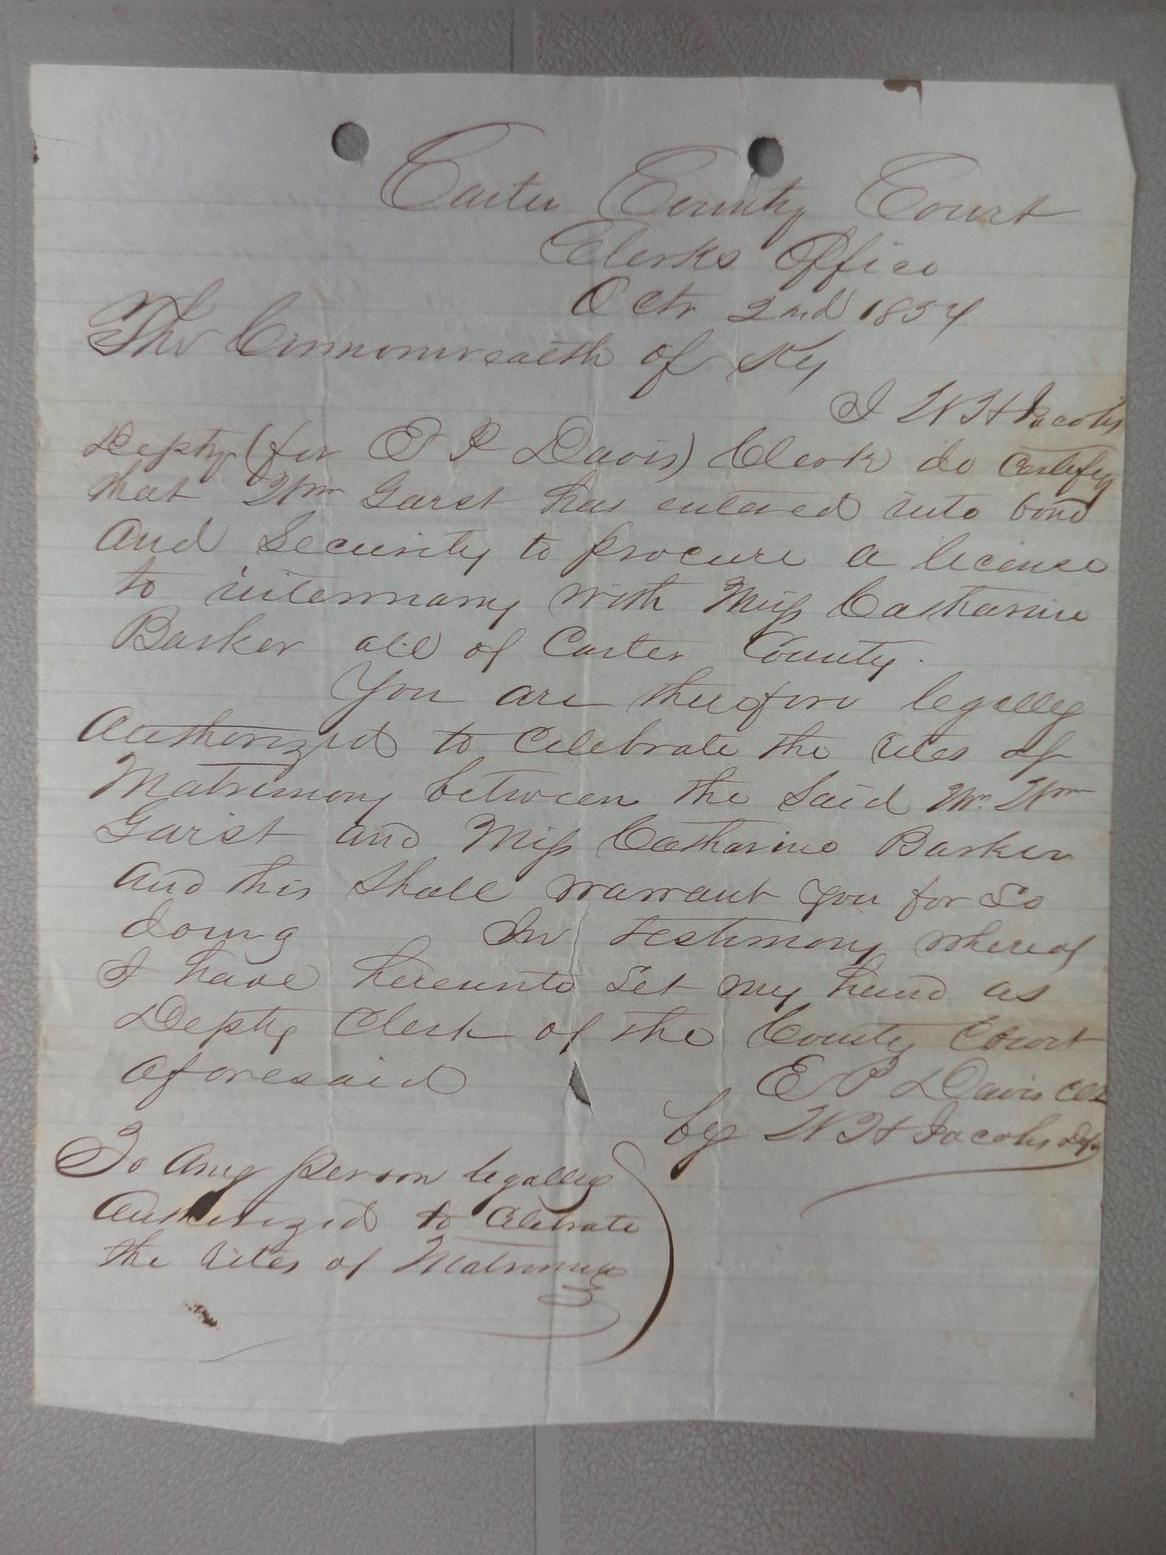 Carter County Court
Clerks Office
Octr 2nd 1854
The Commonwealth of Ky
I W H Jacobs
Depty (for E P Davis) Clerk do Certify
that Wm Garst has entered into bond
And Security to procure a license
to intermarry with Miss Catharine
Barker all of Carter County.
You are therefore legally
Authorized to Celebrate the rites of
Matrimony between the Said Mr. Wm
Garst and Miss Catharine Barker
And this Shall warrant you for So
doing In testimony whereof
I have hereunto Set my hand as
Depty Clerk of the County Court
aforesaid E P Davis Clk
by W H Jacobs Dep.
To Any person legally
Authorized to Celebrate
the rites of Matrimony